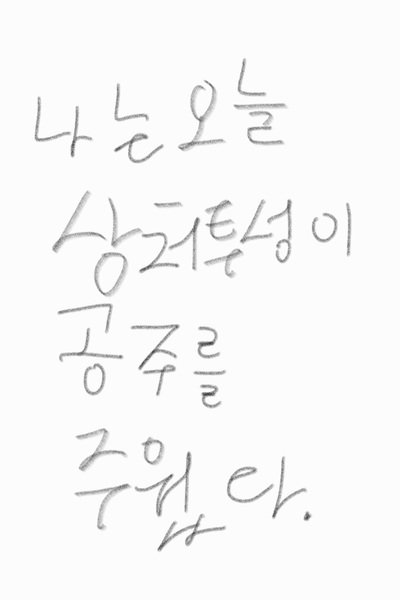 나는오늘
상처투성이
공주를
주웠다.